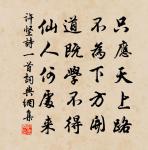 只應天上路
不為下方開
道既學不得
仙人何處来
許堅詩一首詞典網集